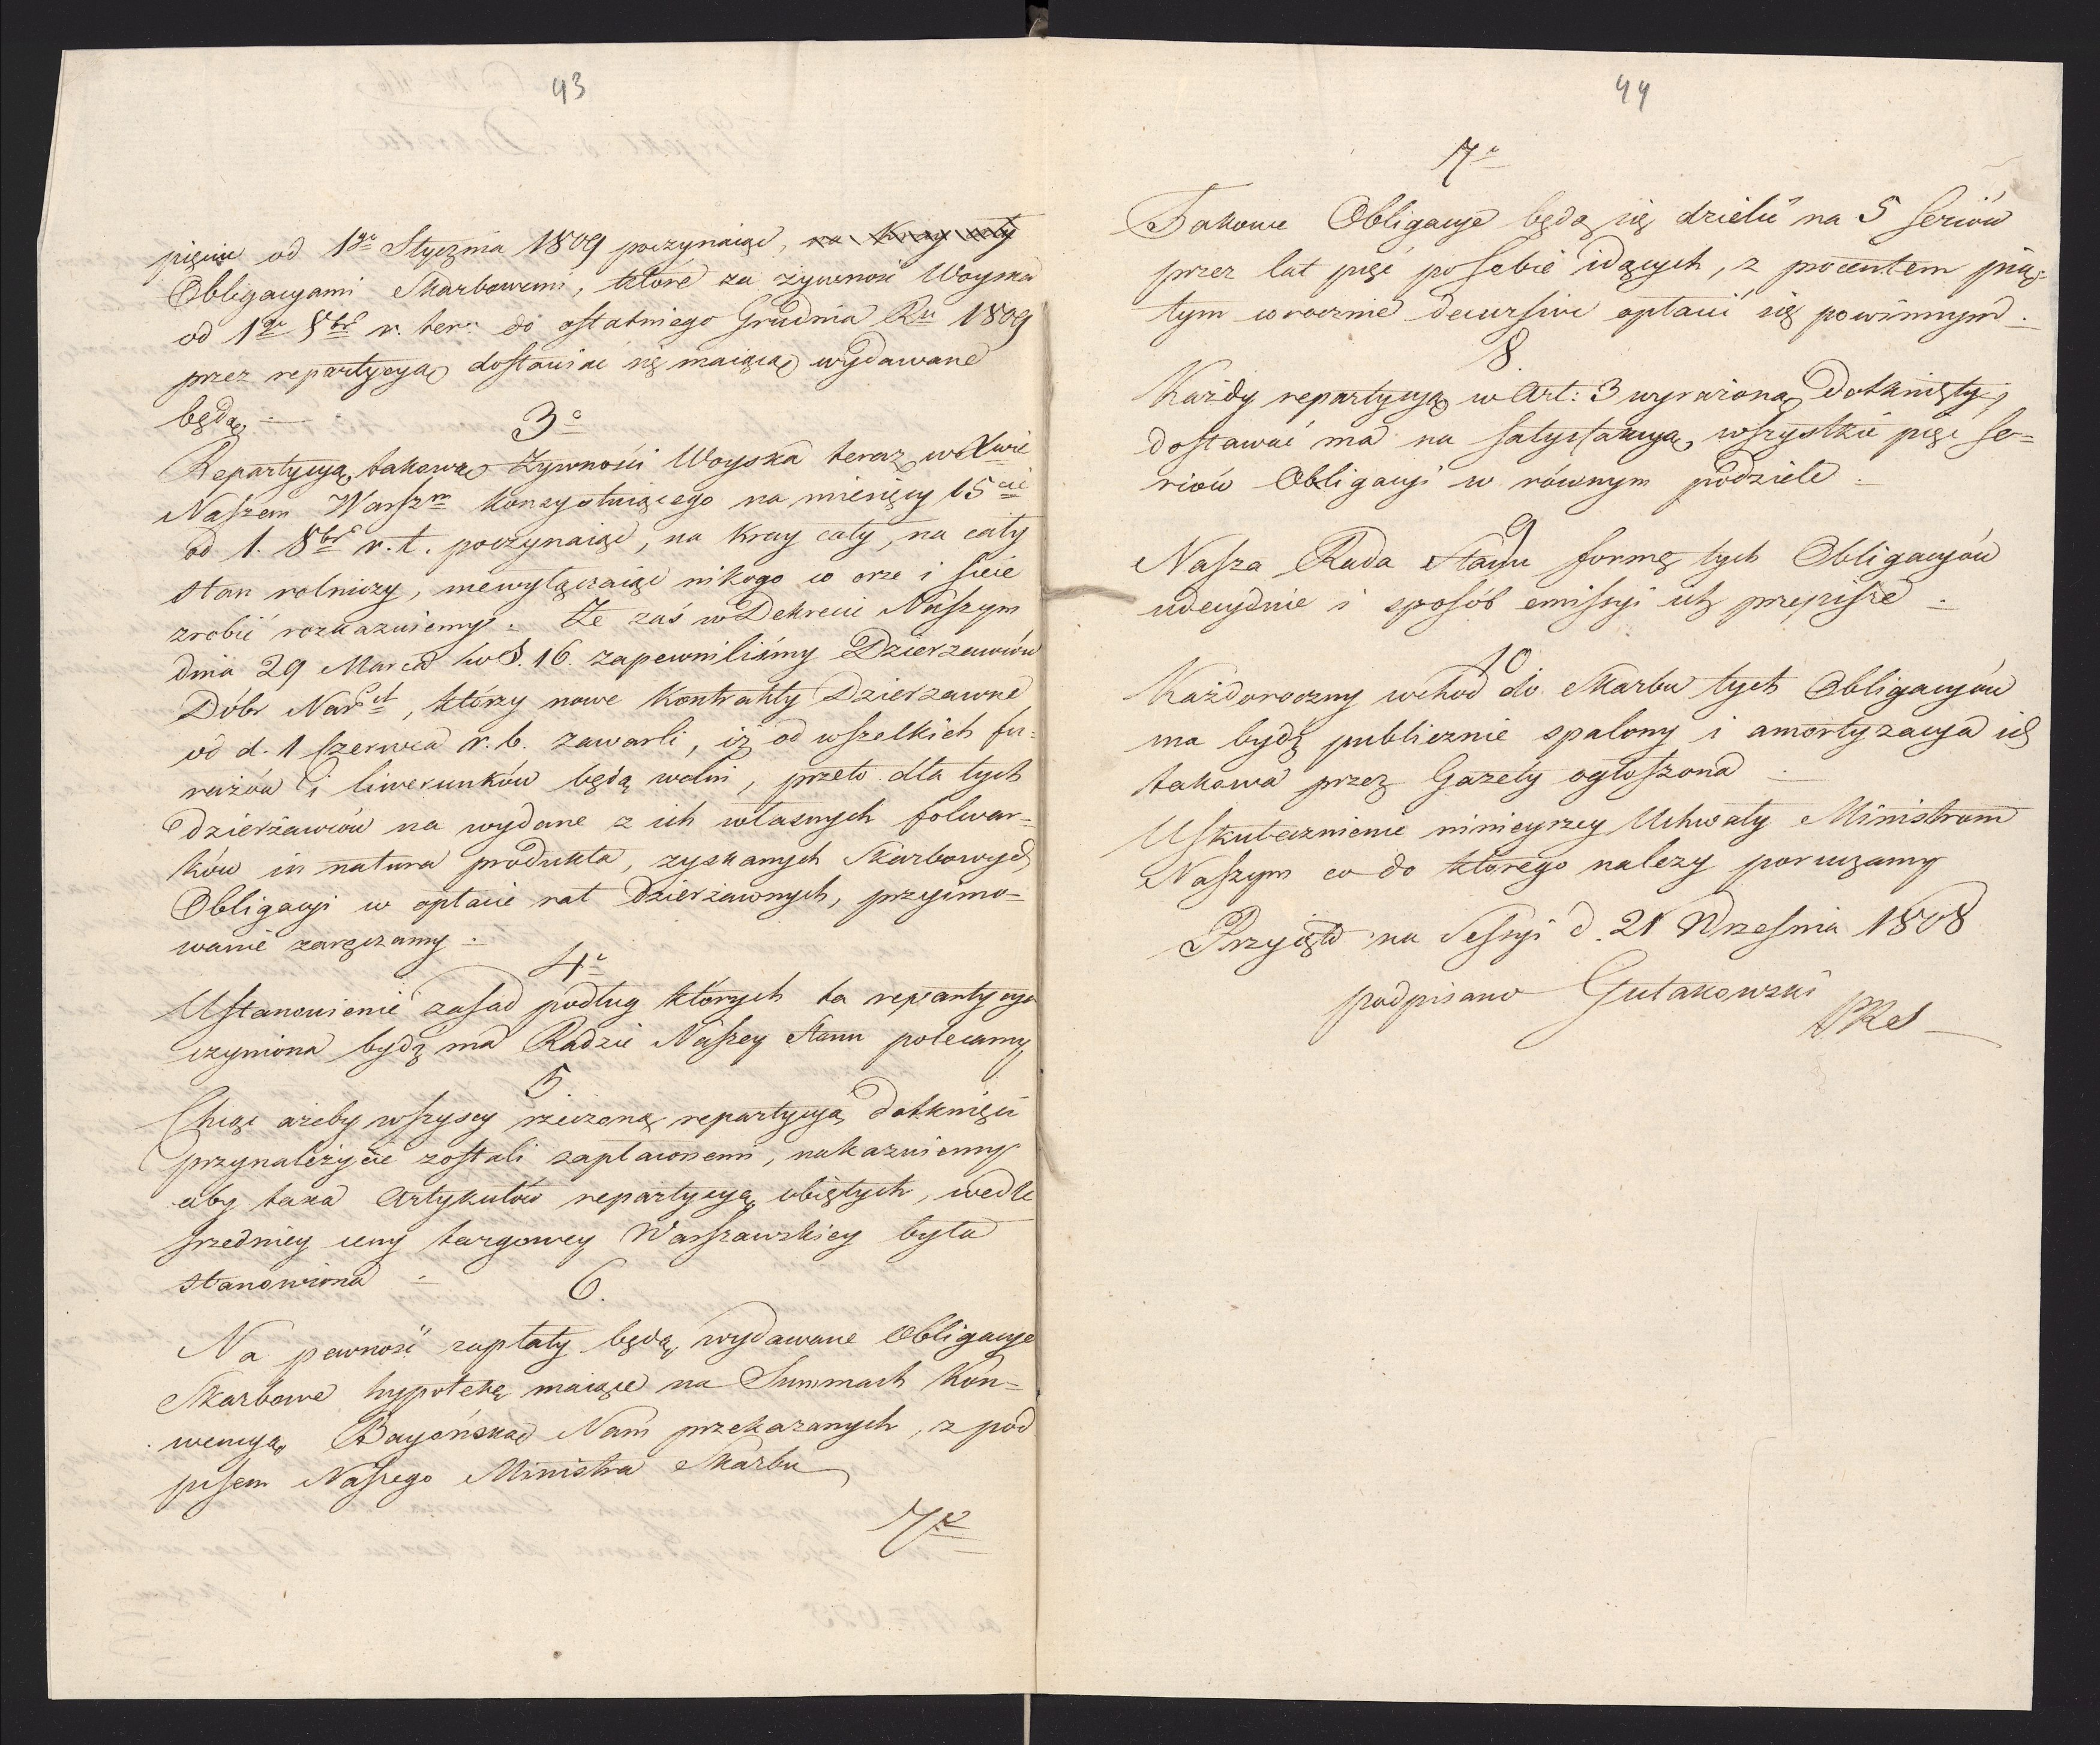 43
pięciu od 1go Stycznia 1809 poczynaiąc, na Kray cały
Obligacyami Skarbowemi, które za żywność Woyska
od 1go 8bra r. ter: do ostatniego Grudnia Ru 1809
przez repartycyą dostawiać się maiącą wydawane
będą. —
3o
Repartycyą takową Żywności Woyska teraz w Xwie
Naszem Warszm konsystuiącego na miesięcy 15cie
od 1. 8bra r. t. poczynaiąc, na Kray cały, na cały
stan rolniczy, niewyłączaiąc nikogo co orze i sieie
zrobić rozkazuiemy. Że zaś w Dekrecie Naszym
dnia 29 Marca w §. 16. zapewniliśmy Dzierzawców
Dóbr Narch, którzy nowe Kontrakty Dzierzawne
od d. 1 Czerwca r. b. zawarli, iż od wszelkich fu-
rażów i liwerunków będą wolni, przeto dla tych
dzierżawców na wydane z ich własnych folwar-
ków in natura produkta, zyskanych Skarbowych
Obligacyi w opłacie rat Dzierżawnych, przyimo-
wanie zaręczamy.
4o
Ustanowienie zasad podług których ta repartycya
czyniona bydź ma Radzie Naszey Stanu polecamy
5.
Chcąc ażeby wszyscy rzeczoną repartycyą dotknięci
przynależycie zostali zapłaconemi, nakazuiemy
aby taxa Artykułów repartycyą obiętych, wedle
średniey ceny targowey Warszawskiey była
stanowiona
6.
Na pewność zapłaty będą wydawane Obligacye
Skarbowe hypotekę maiące na Summach Kon-
wencyą Bayońską Nam przekazanych, z pod
pisem Naszego Ministra Skarbu
7o
44
7o
Takowe Obligacye będą się dzielić na 5 Seriów
przez lat pięć po sobie idących, z procentem pią-
tym corocznie decursive opłacić się powinnym.
8.
Każdy repartycyą w Art: 3 wyrażoną Dotknięty,
dostawać ma na satysfakcyą, wszystkie pięć se-
riów Obligacyi w równym podziele
9
Nasza Rada Stanu formę tych Obligacyów
udecyduie i sposób emissyi ich przepisze
10
Każdoroczny wchod do Skarbu tych Obligacyów
ma bydź publicznie spalony i amortyzacya ich
takowa przez Gazety ogłoszona
Uskutecznienie ninieyszey Uchwały Ministrom
Naszym co do którego nalezy poruczamy
Przyięto na Sessyi d. 21 Wrzesnia 1808
podpisano Gutakowski
PRS